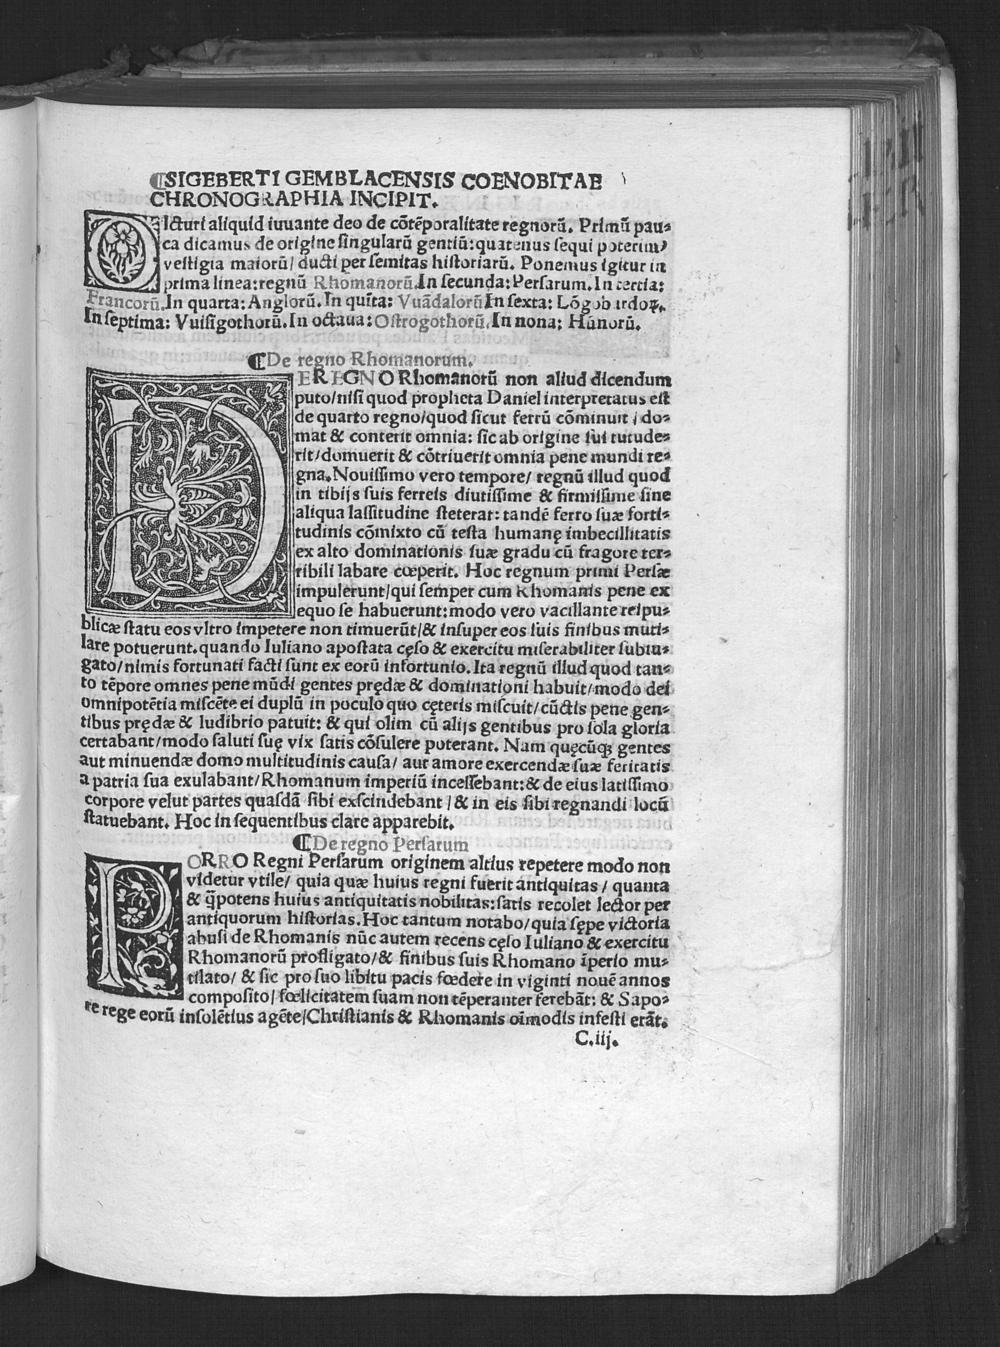 ¶SIGEBERTI GEMBLACENSIS COENOBITAE
CHRONOGRAPHIA INCIPIT.
DIcturi aliquid iuuante deo de cõtẽporalitate regnorũ. Primũ pau-
ca dicamus de origine singularũ gentiũ: quatenus sequi poterim᾽
vestigia maiorũ/ ducti per semitas historiarũ. Ponemus igitur in
prima linea: regnũ Rhomanorũ. In secunda: Persarum. In tertia:
Francorũ. In quarta: Anglorũ. In quĩta: Vuãdalorũ In sexta: Lõgobardoꝝ.
In septima: Vuisigothorũ. In octaua: Ostrogothorũ. In nona: Hũnorũ.
¶De regno Rhomanorum.
DE REGNO Rhomanorũ non aliud dicendum
puto/nisi quod propheta Daniel interpretatus est
de quarto regno/quod sicut ferrũ cõminuit / do-
mat & conterit omnia: sic ab origine sui tutude-
rit/domuerit & cõtriuerit omnia pene mundi re-
gna. Nouissimo vero tempore/ regnũ illud quod
in tibijs suis ferreis diutissime & firmissime sine
aliqua lassitudine steterat: tandẽ ferro suæ forti-
tudinis cõmixto cũ testa humanę imbecillitatis
ex alto dominationis suæ gradu cũ fragore ter-
ribili labare cœperit. Hoc regnum primi Persæ
impulerunt/qui semper cum Rhomanis pene ex
equo se habuerunt: modo vero vacillante reipu-
blicæ statu eos vltro impetere non timuerũt/& insuper eos suis finibus muti-
lare potuerunt. quando Iuliano apostata cęso & exercitu miserabiliter subiu-
gato/nimis fortunati facti sunt ex eorũ infortunio. Ita regnũ illud quod tan-
to tẽpore omnes pene mũdi gentes prędæ & dominationi habuit/modo dei
omnipotẽtia miscẽte ei duplũ in poculo quo cęteris miscuit/cũctis pene gen-
tibus prędæ & ludibrio patuit: & qui olim cũ alijs gentibus pro sola gloria
certabant/modo saluti suę vix satis cõsulere poterant. Nam quęcũqꝫ gentes
aut minuendæ domo multitudinis causa/ aut amore exercendæ suæ feritatis
a patria sua exulabant/Rhomanum imperiũ incessebant: & de eius latissimo
corpore velut partes quasdã sibi exscindebant / & in eis sibi regnandi locũ
statuebant. Hoc in sequentibus clare apparebit.
¶De regno Persarum
PORRO Regni Persarum originem altius repetere modo non
videtur vtile/ quia quæ huius regni fuerit antiquitas / quanta
& q̃potens huius antiquitatis nobilitas: satis recolet lector per
antiquorum historias. Hoc tantum notabo/quia sępe victoria
abusi de Rhomanis nũc autem recens cęso Iuliano & exercitu
Rhomanorũ profligato/& finibus suis Rhomano ĩperio mu-
tilato/ & sic pro suo libitu pacis fœdere in viginti nouẽ annos
composito/ fœlicitatem suam non tẽperanter ferebãt: & Sapo-
re rege eorũ insolẽtius agẽte/Christianis & Rhomanis oĩmodis infesti erãt.
C.iij.